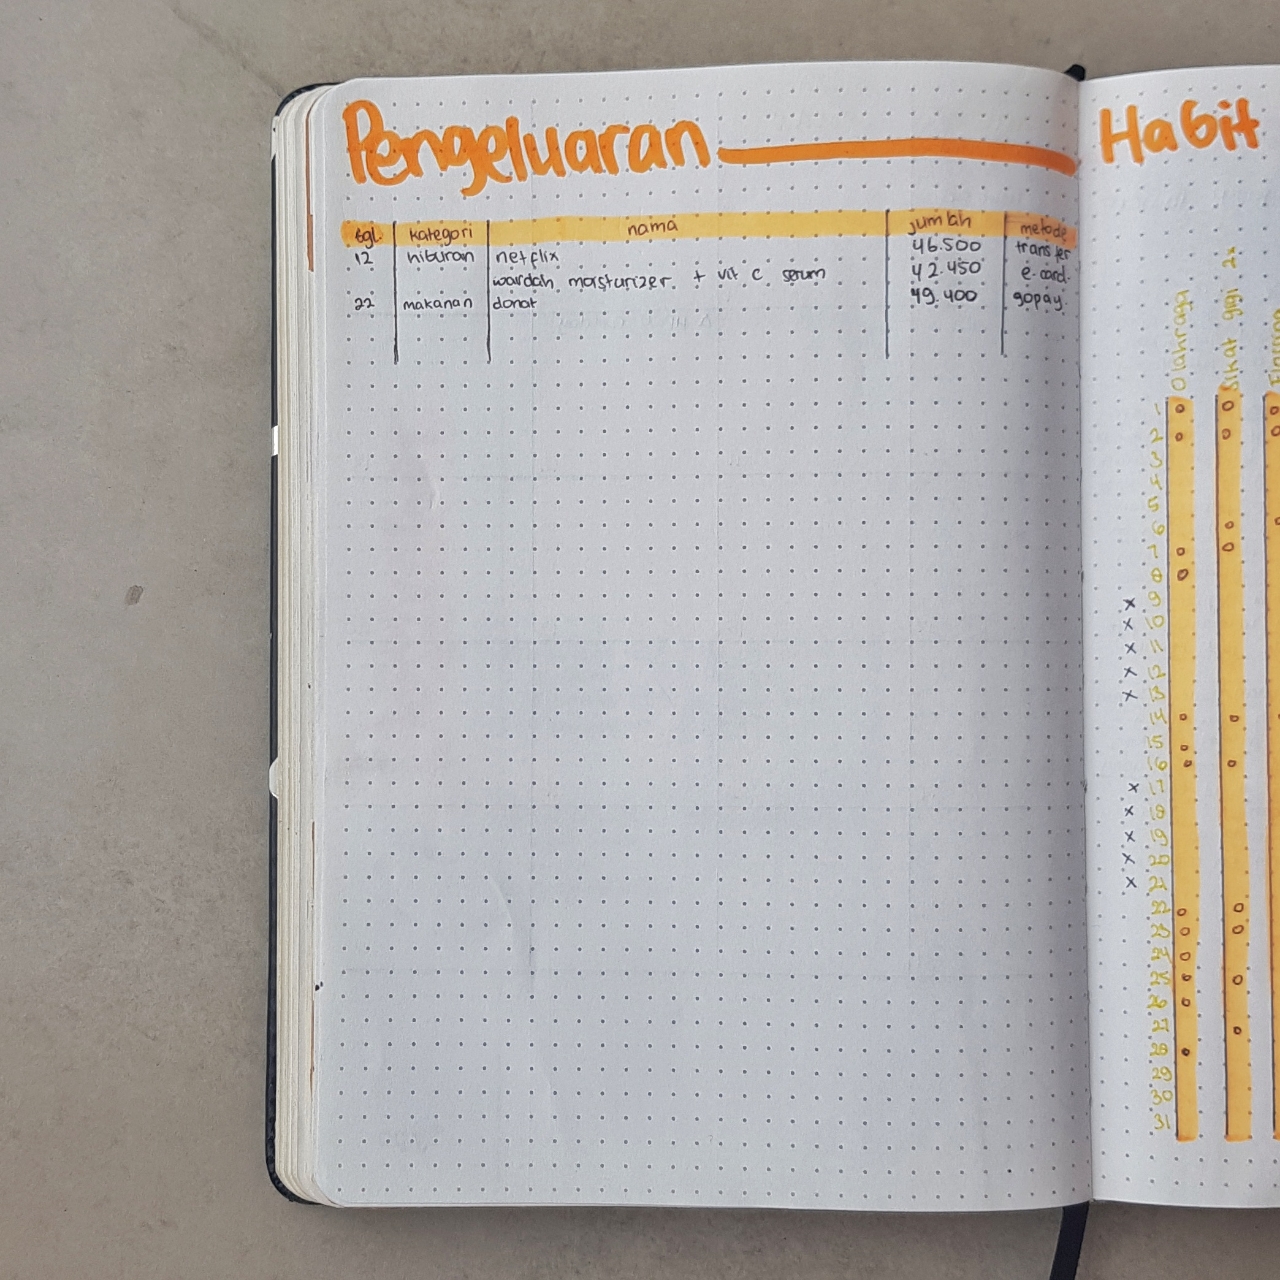 Pengeluaran
tgl. kategori nama jumlah metode
12 hiburan netflix 46.500 transfer
wardah moisturizer + vit c serum 42.450 e-card
22 makanan donat 49.400 gopay
Habit
Olahraga
Sikat gigi 2x
1
2
3
4
5
6
7
8
x 9
x 10
x 11
x 12
x 13
14
15
16
x 17
x 18
x 19
x 20
x 21
22
23
24
25
26
27
28
29
30
31